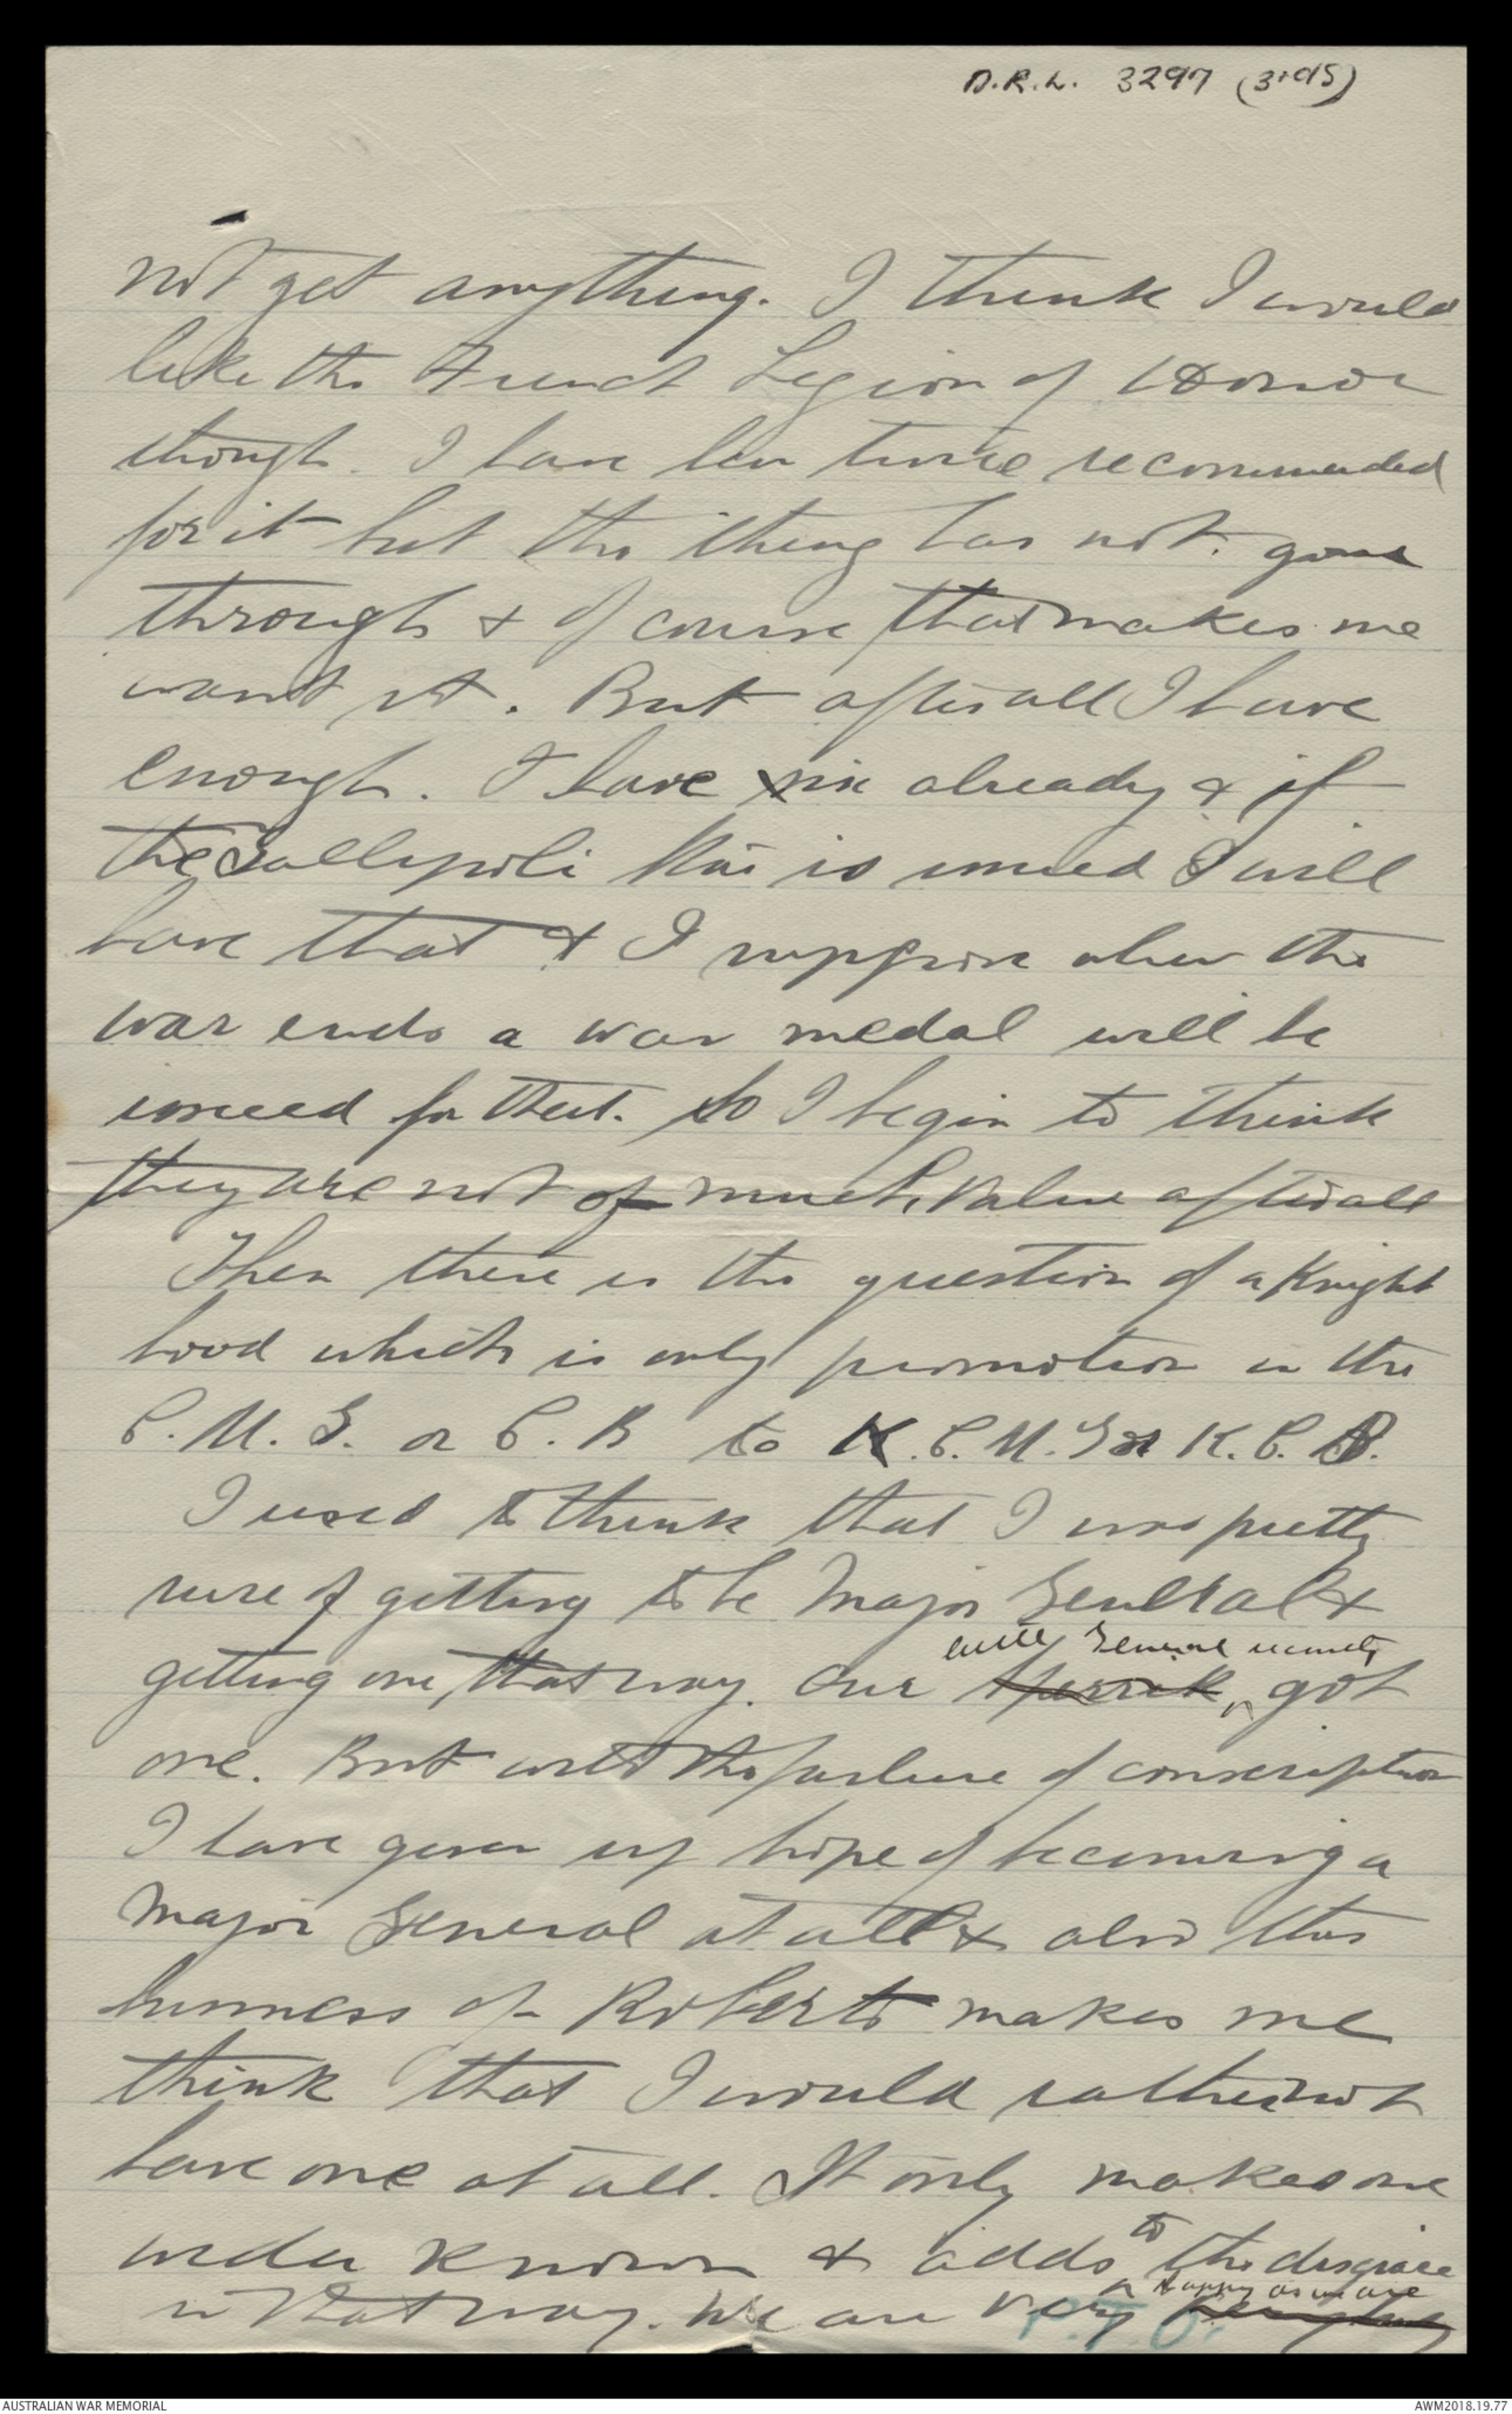 D.R.L. 3297 (3rd95)
not get anything. I think I would
like the French Legion of Honor
though. I have been twice recommended
for it but the thing has not gone
through & of course that makes me
want it. But after all I have
enough. I have six already & if
the Gallipoli Star is issued I will
have that & I suppose when the
war ends a war medal will be
issued for that. So I begin to think
they are not of much value after all
Then there is the question of a Knight
hood which is only promotion in the
C.M.G. or C.B to K.C.M.G or K.C.B.
I used to think that I was pretty
sure of getting to be Major General &
General recently
getting one, that way. Our got
one. But with the failure of conscription
I have given up hope of becoming a
Major General at all & also this
business of Roberts makes me
think that I would rather not
have one at all. It only makes one
to
wider known & adds the disgrace
Happy as we are
in that way. We are very
P.T.O.
AUSTRALIAN WAR MEMORIAL
AWM2018.19.77